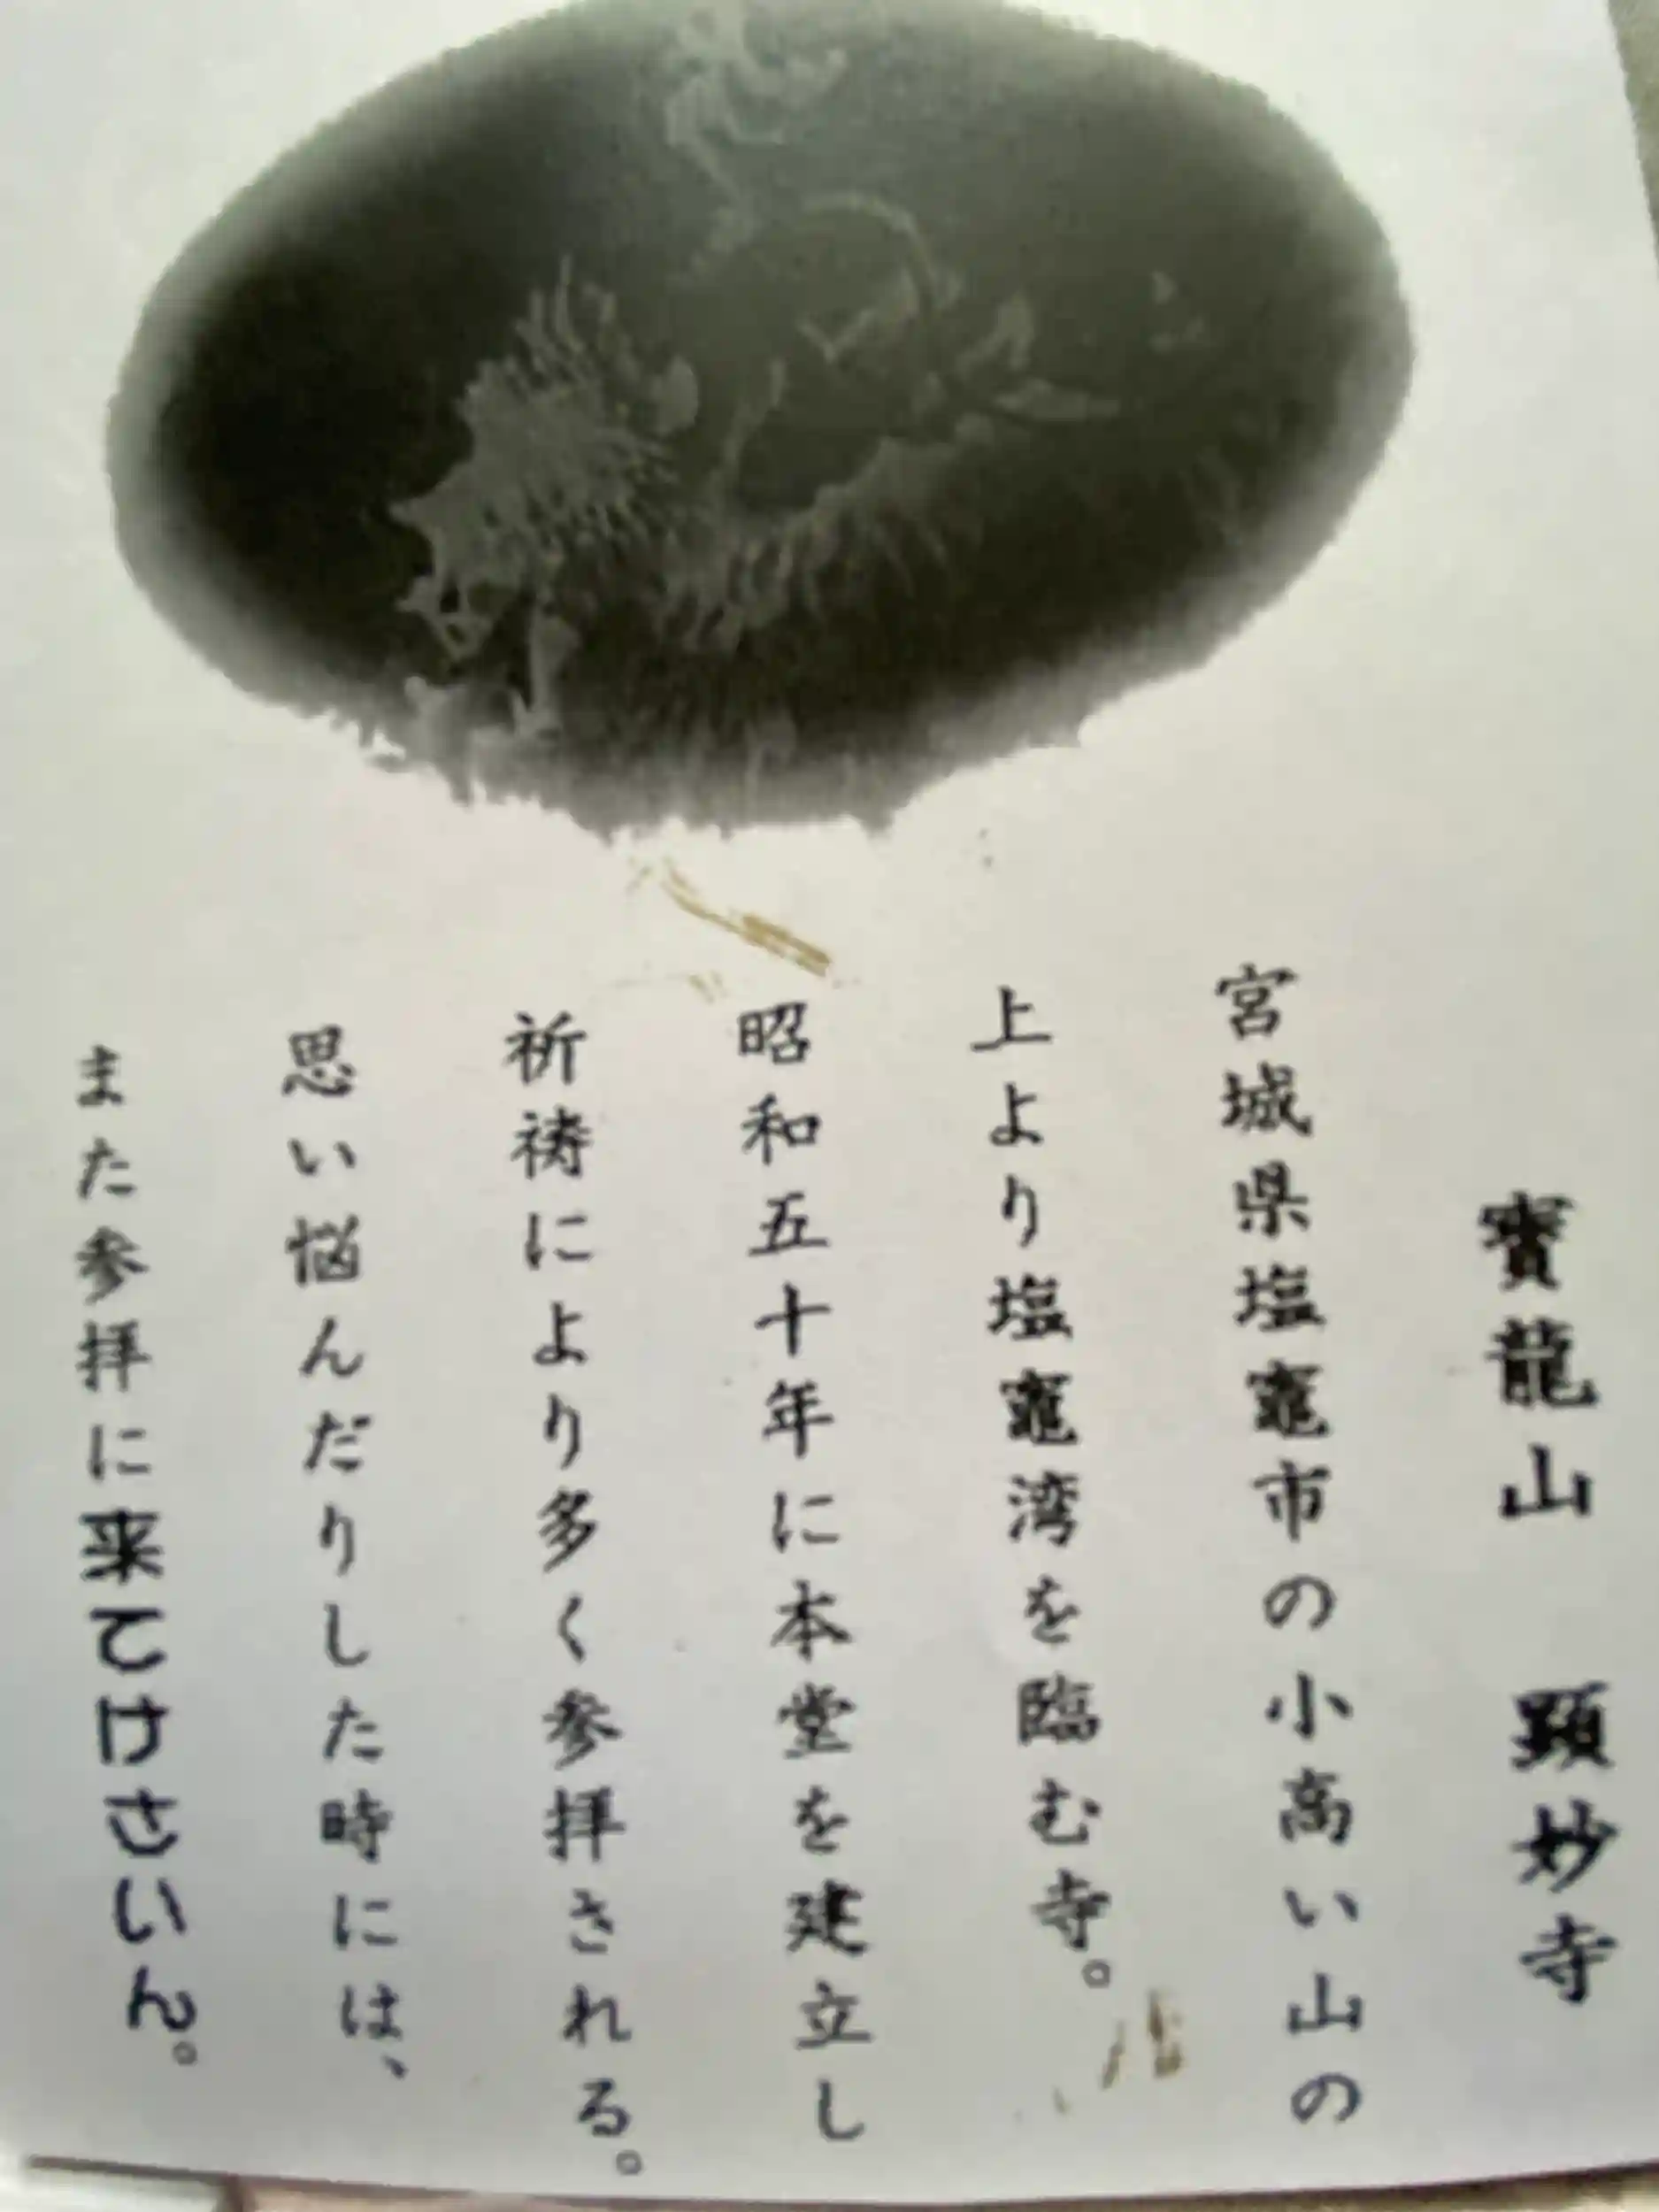 寳龍山　顕妙寺
宮城県塩竈市の小高い山の
上より塩竈湾を臨む寺。
昭和五十年に本堂を建立し
祈祷により多く参拝される。
思い悩んだりした時には、
また参拝に来てけさいん。